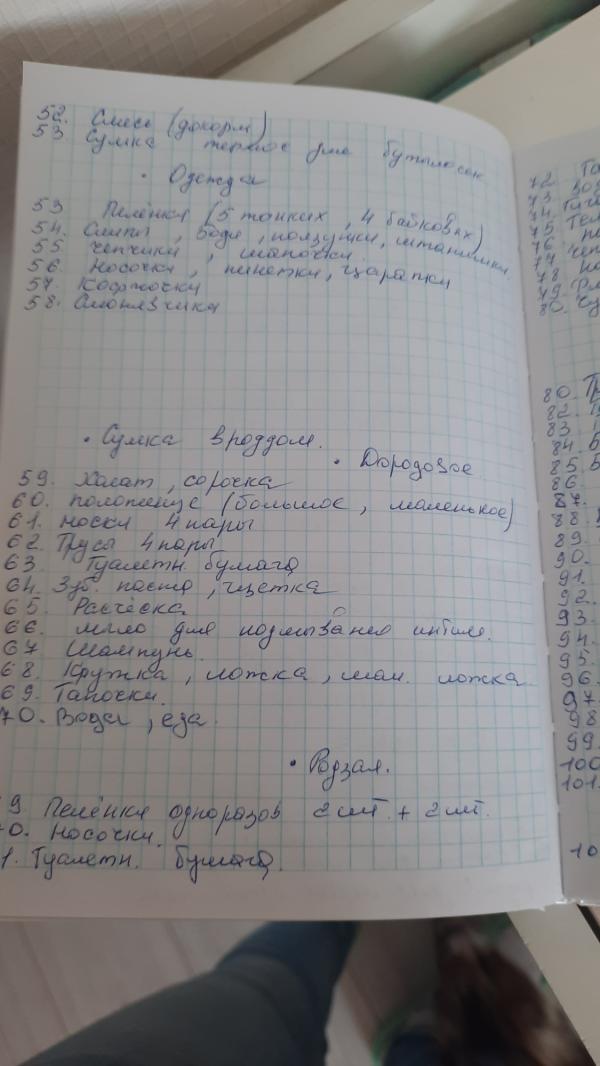 52. Смесь (докорм)
53 Сумка термос для бутылосок
• Одежда
53 Пелёнки (5 тонких, 4 байковых)
54. Слипы, боди, ползунки, штанишки
55 чепчики, шапочки.
56. Носочки, пинетки, царапки
57. Кофточки
58. Слюнявчика
• Сумка в роддом.
• Дородовое.
59. Халат, сорочка
60. полотенце (большое, маленькое)
61. носки 4 пары
62. Трусы 4 пары
63 Туалетн. бумага
64. Зуб. паста, щетка
65. Расчёска
66. мыло для подмывания интим.
67 Шампунь.
68. Кружка, ложка, мал. ложка
69. Тапочки.
70. Вода, еда.
• Родзал.
9 Пелёнки одноразов 2 шт. + 2 шт.
0. Носочки.
1. Туалетн. бумага.
72 Та
73. 
74. 
75. Тел
76. 
77. чеп
78 но
79. 
80. 
80. Тр
82. 
83
84. Б
85. Б
86.
87.
88.
89
90.
91.
92.
93.
94.
95.
96.
97
98
99.
100
101.
10